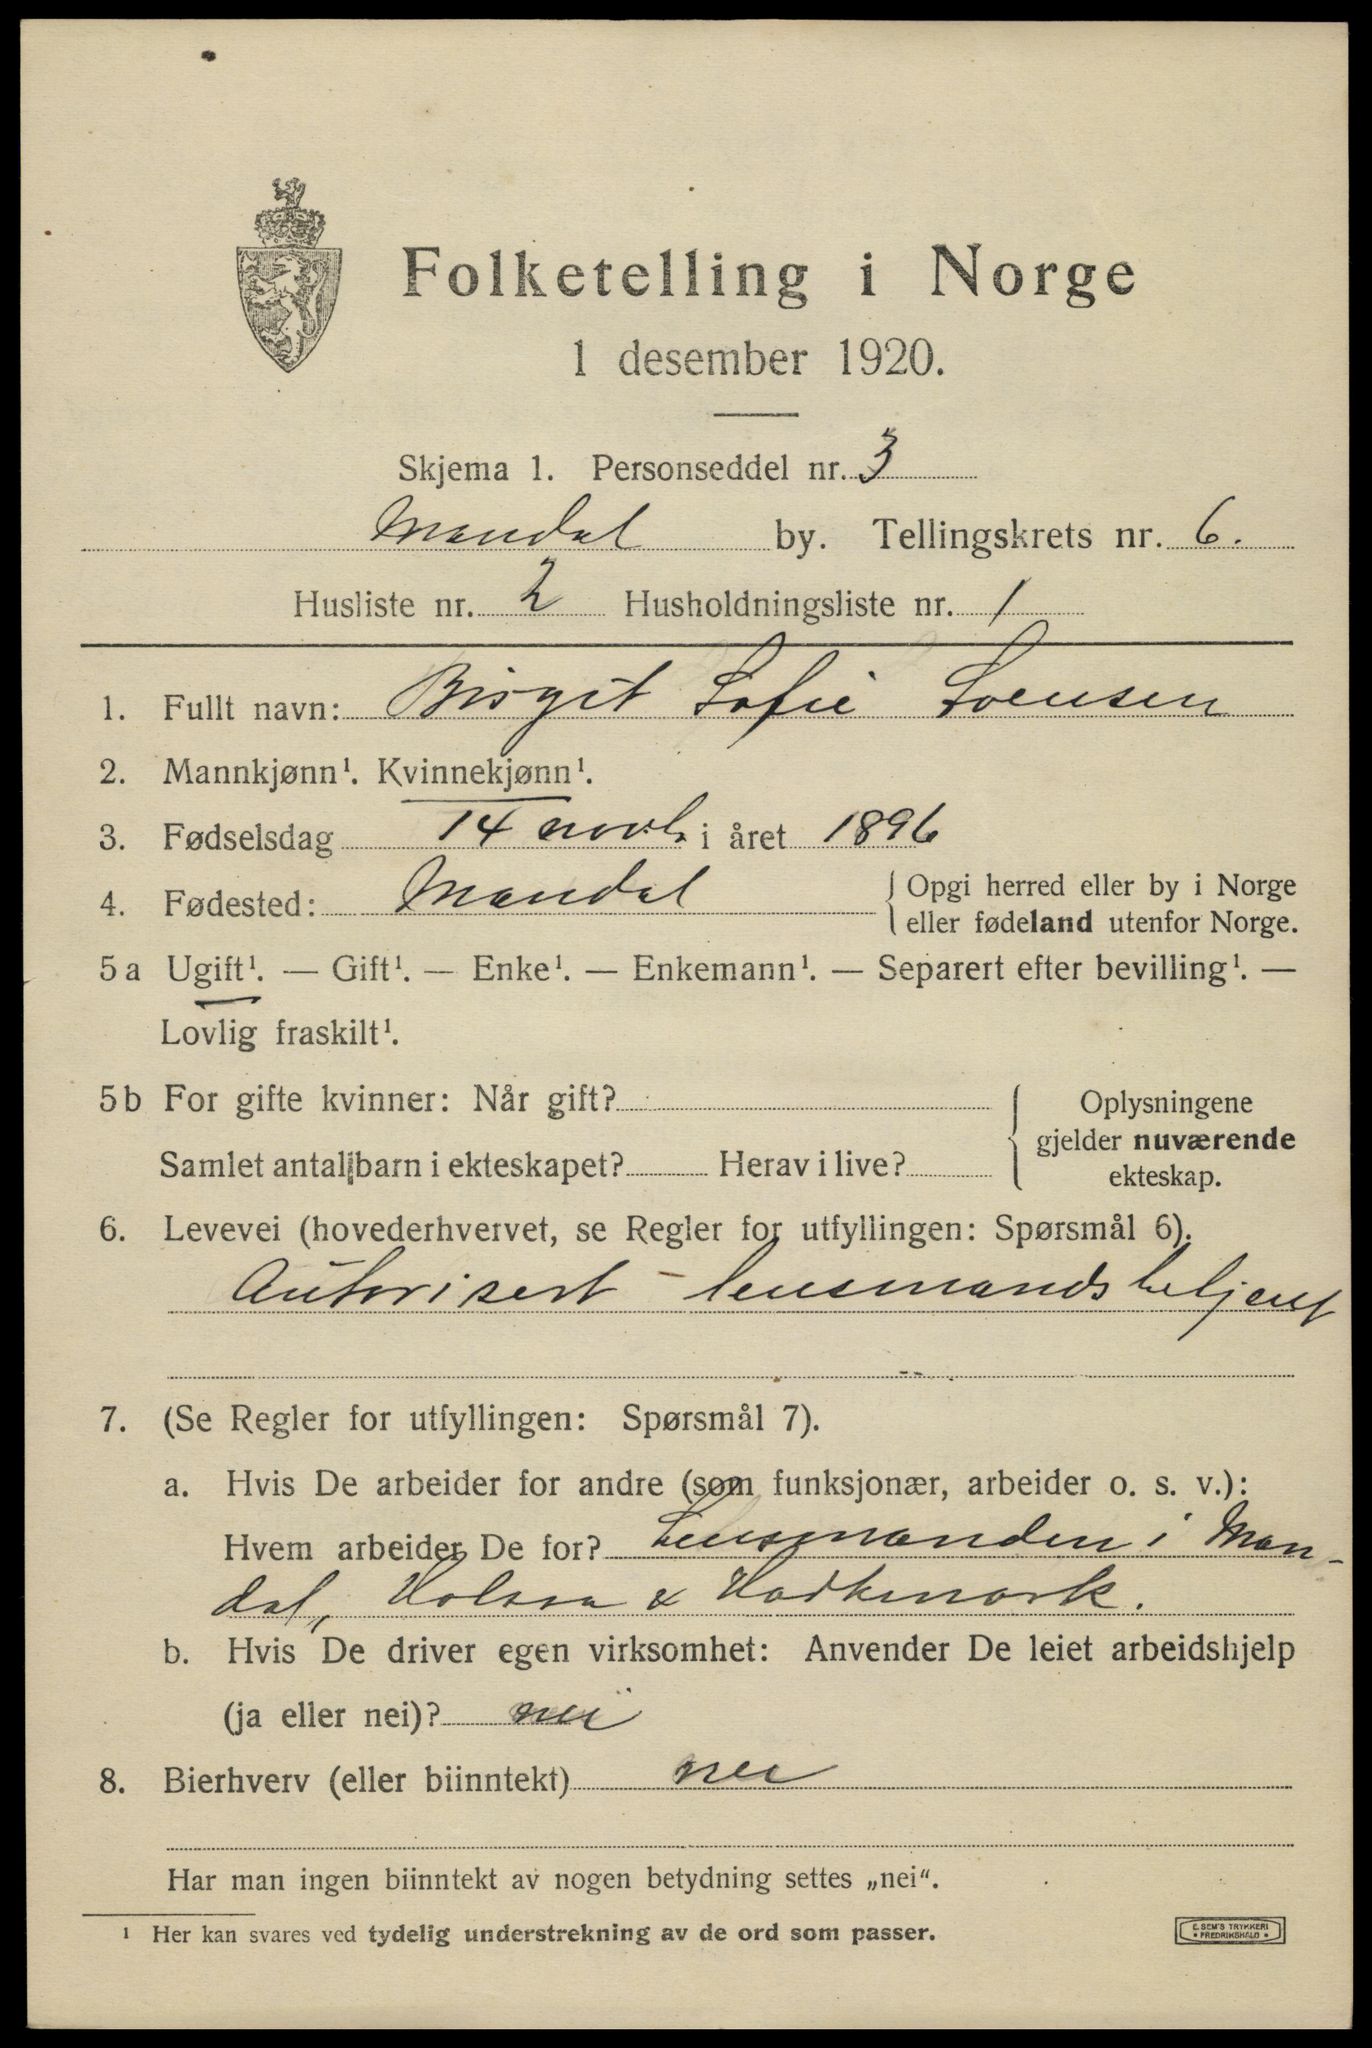 Folketelling i Norge
1 desember 1920.
Skjema 1. Personseddel nr. 3
Mandal by. Tellingskrets nr. 6.
Husliste nr. 2 Husholdningsliste nr. 1
1. Fullt navn: Birgit Sofie Svensen
2. Mannkjønn¹. Kvinnekjønn¹.
3. Fødselsdag 14 novb. i året 1896
4. Fødested: Mandal { Opgi herred eller by i Norge
eller fødeland utenfor Norge.
5a Ugift¹. — Gift¹. — Enke¹. — Enkemann¹. — Separert efter bevilling¹. —
Lovlig fraskilt¹.
5b For gifte kvinner: Når gift? { Oplysningene
gjelder nuværende
Samlet antal barn i ekteskapet? Herav i live?
ekteskap.
6. Levevei (hovederhvervet, se Regler for utfyllingen: Spørsmål 6).
Autorisert lensmandsbetjent
7. (Se Regler for utfyllingen: Spørsmål 7).
a. Hvis De arbeider for andre (som funksjonær, arbeider o. s. v.):
Hvem arbeider De for? Lensmanden i Man-
dal, Holum & Halkmark.
b. Hvis De driver egen virksomhet: Anvender De leiet arbeidshjelp
(ja eller nei)? nei
8. Bierhverv (eller biinntekt) nei
Har man ingen biinntekt av nogen betydning settes „nei“.
¹ Her kan svares ved tydelig understrekning av de ord som passer.
E. SEM'S TRYKKERI
• FREDRIKSHALD •